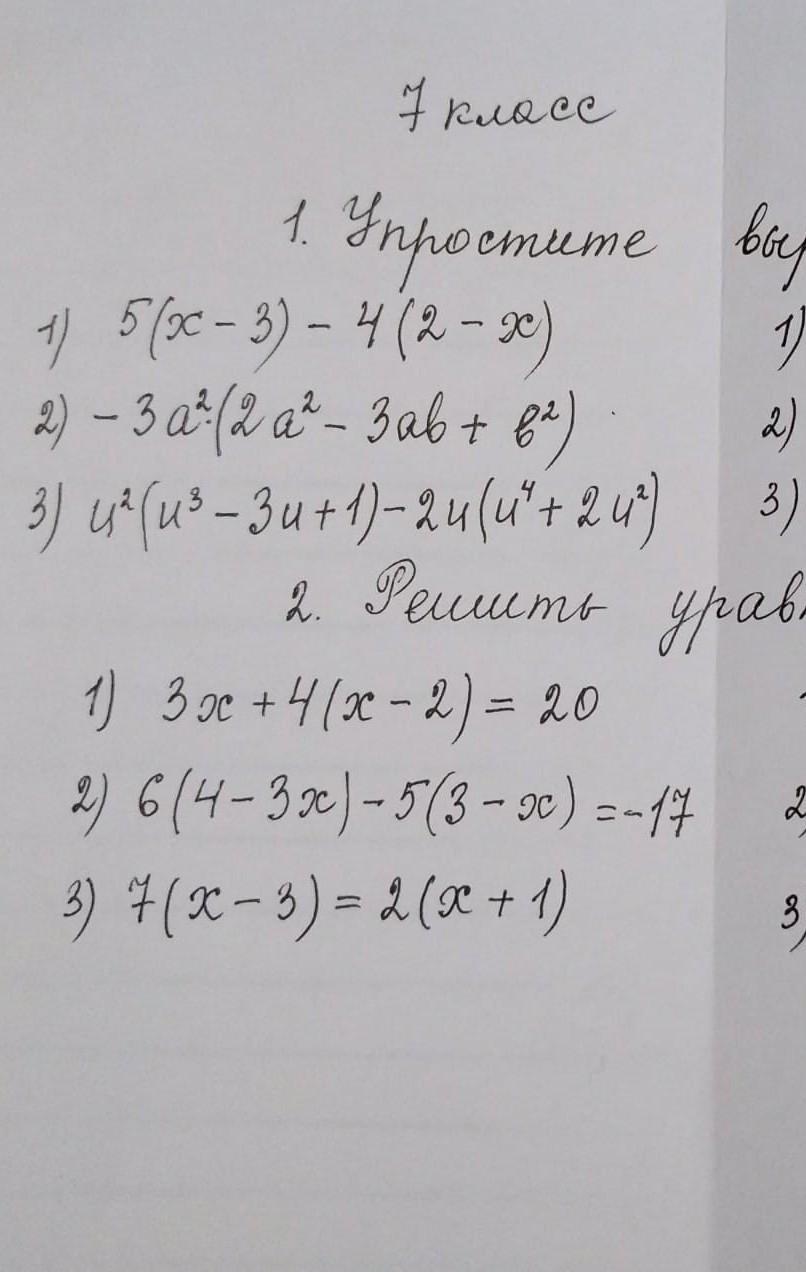 7 класс
1. Упростите
1) 5(x - 3) - 4(2 - x) 1)
2) - 3a²·(2a² - 3ab + b²) 2)
3) u²(u³ - 3u + 1) - 2u(u⁴ + 2u²) 3)
2. Решить
1) 3x + 4(x - 2) = 20
2) 6(4 - 3x) - 5(3 - x) = -17 2)
3) 7(x - 3) = 2(x + 1) 3)